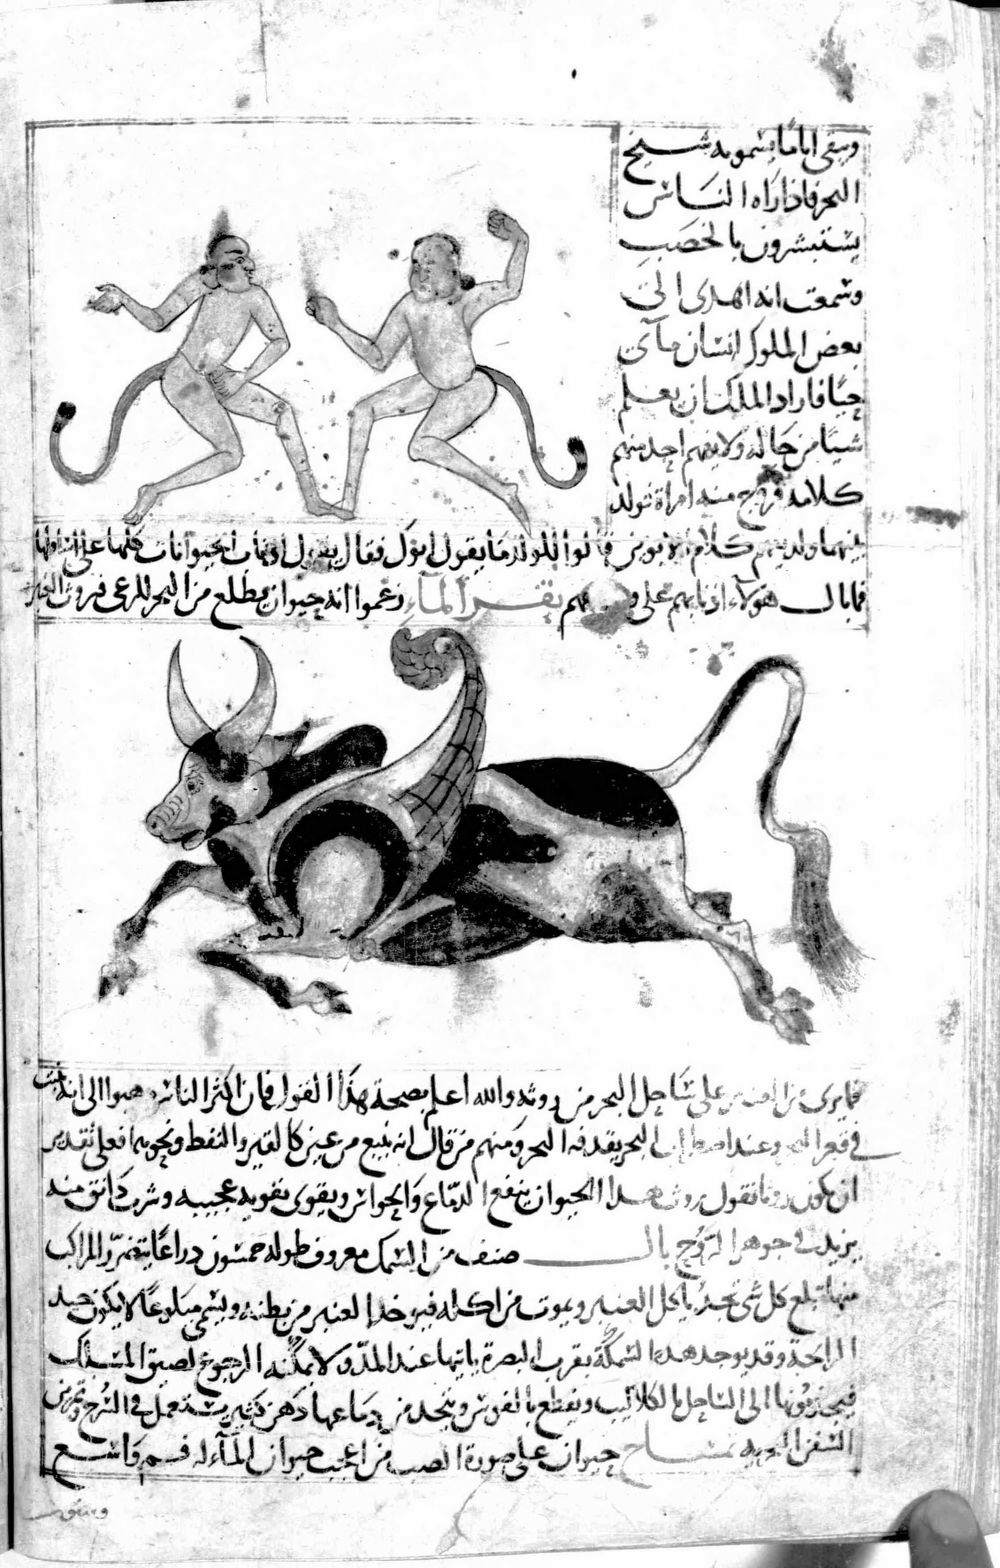 ويبقى اياما يسمونه شيخ
البحر فاذا راه الناس
يستبشرون بالخصب
وسمعت انه اهدى الى
بعض الملوك انسان مآئى
حيا فاراد الملك ان يعلم
شيئا من حاله ولا يفهم احد منهم
كلامه فزوج منه امراة فولد
بينهما ولد يفهم كلام ابويه فقالوا للولد ما يقول ابوك فقال يقول اذناب الحيوانات كلها على اسافلها
فما بال هولاء اذنابهم على وجوههم بقر المآء زعموا انه حيوان يطلع من البحر للرعى فيروث العنبر
فما يرى من العنبر على ساحل البحر من روثه والله اعلم بصحة هذا القول فان اكثر الناس ذهبوا الى انه ينبت
في قعر البحر وعند اضطراب البحر يقذفه البحر ومنهم من قال انه ينبع من عين كالقير والنفط ونحوهما فعلى تقدير
ان يكون روثا نقول روث هذا الحيوان ينفع الدماغ والحواس ويقوى تقوية عجيبة وشرب دانق منه
يزيد في جوهر الروح بال صنف من السمك معروف طوله خمسون ذراعا يتضرر المراكب
منها تبلع كل شى تجد ياكل العنبر ويموت من اكله فيوخذ العنبر من بطنه ويسمى مبلوعا لا يكون جيد
الرايحة وقد يوجد هذه السمكة بقرب البصرة ياتيها عند المد ولا يمكنه الرجوع لضيق المسلك
فيجذبونها الى الساحل بالكلاليب ويقطع بالفوس ويتخذ من دماغها دهن كثير يستعمل في السرج وتمرين
السفن البحرية تمساح حيوان على صورة الضب من اعجب حيوان المآء له فم واسع
وستون